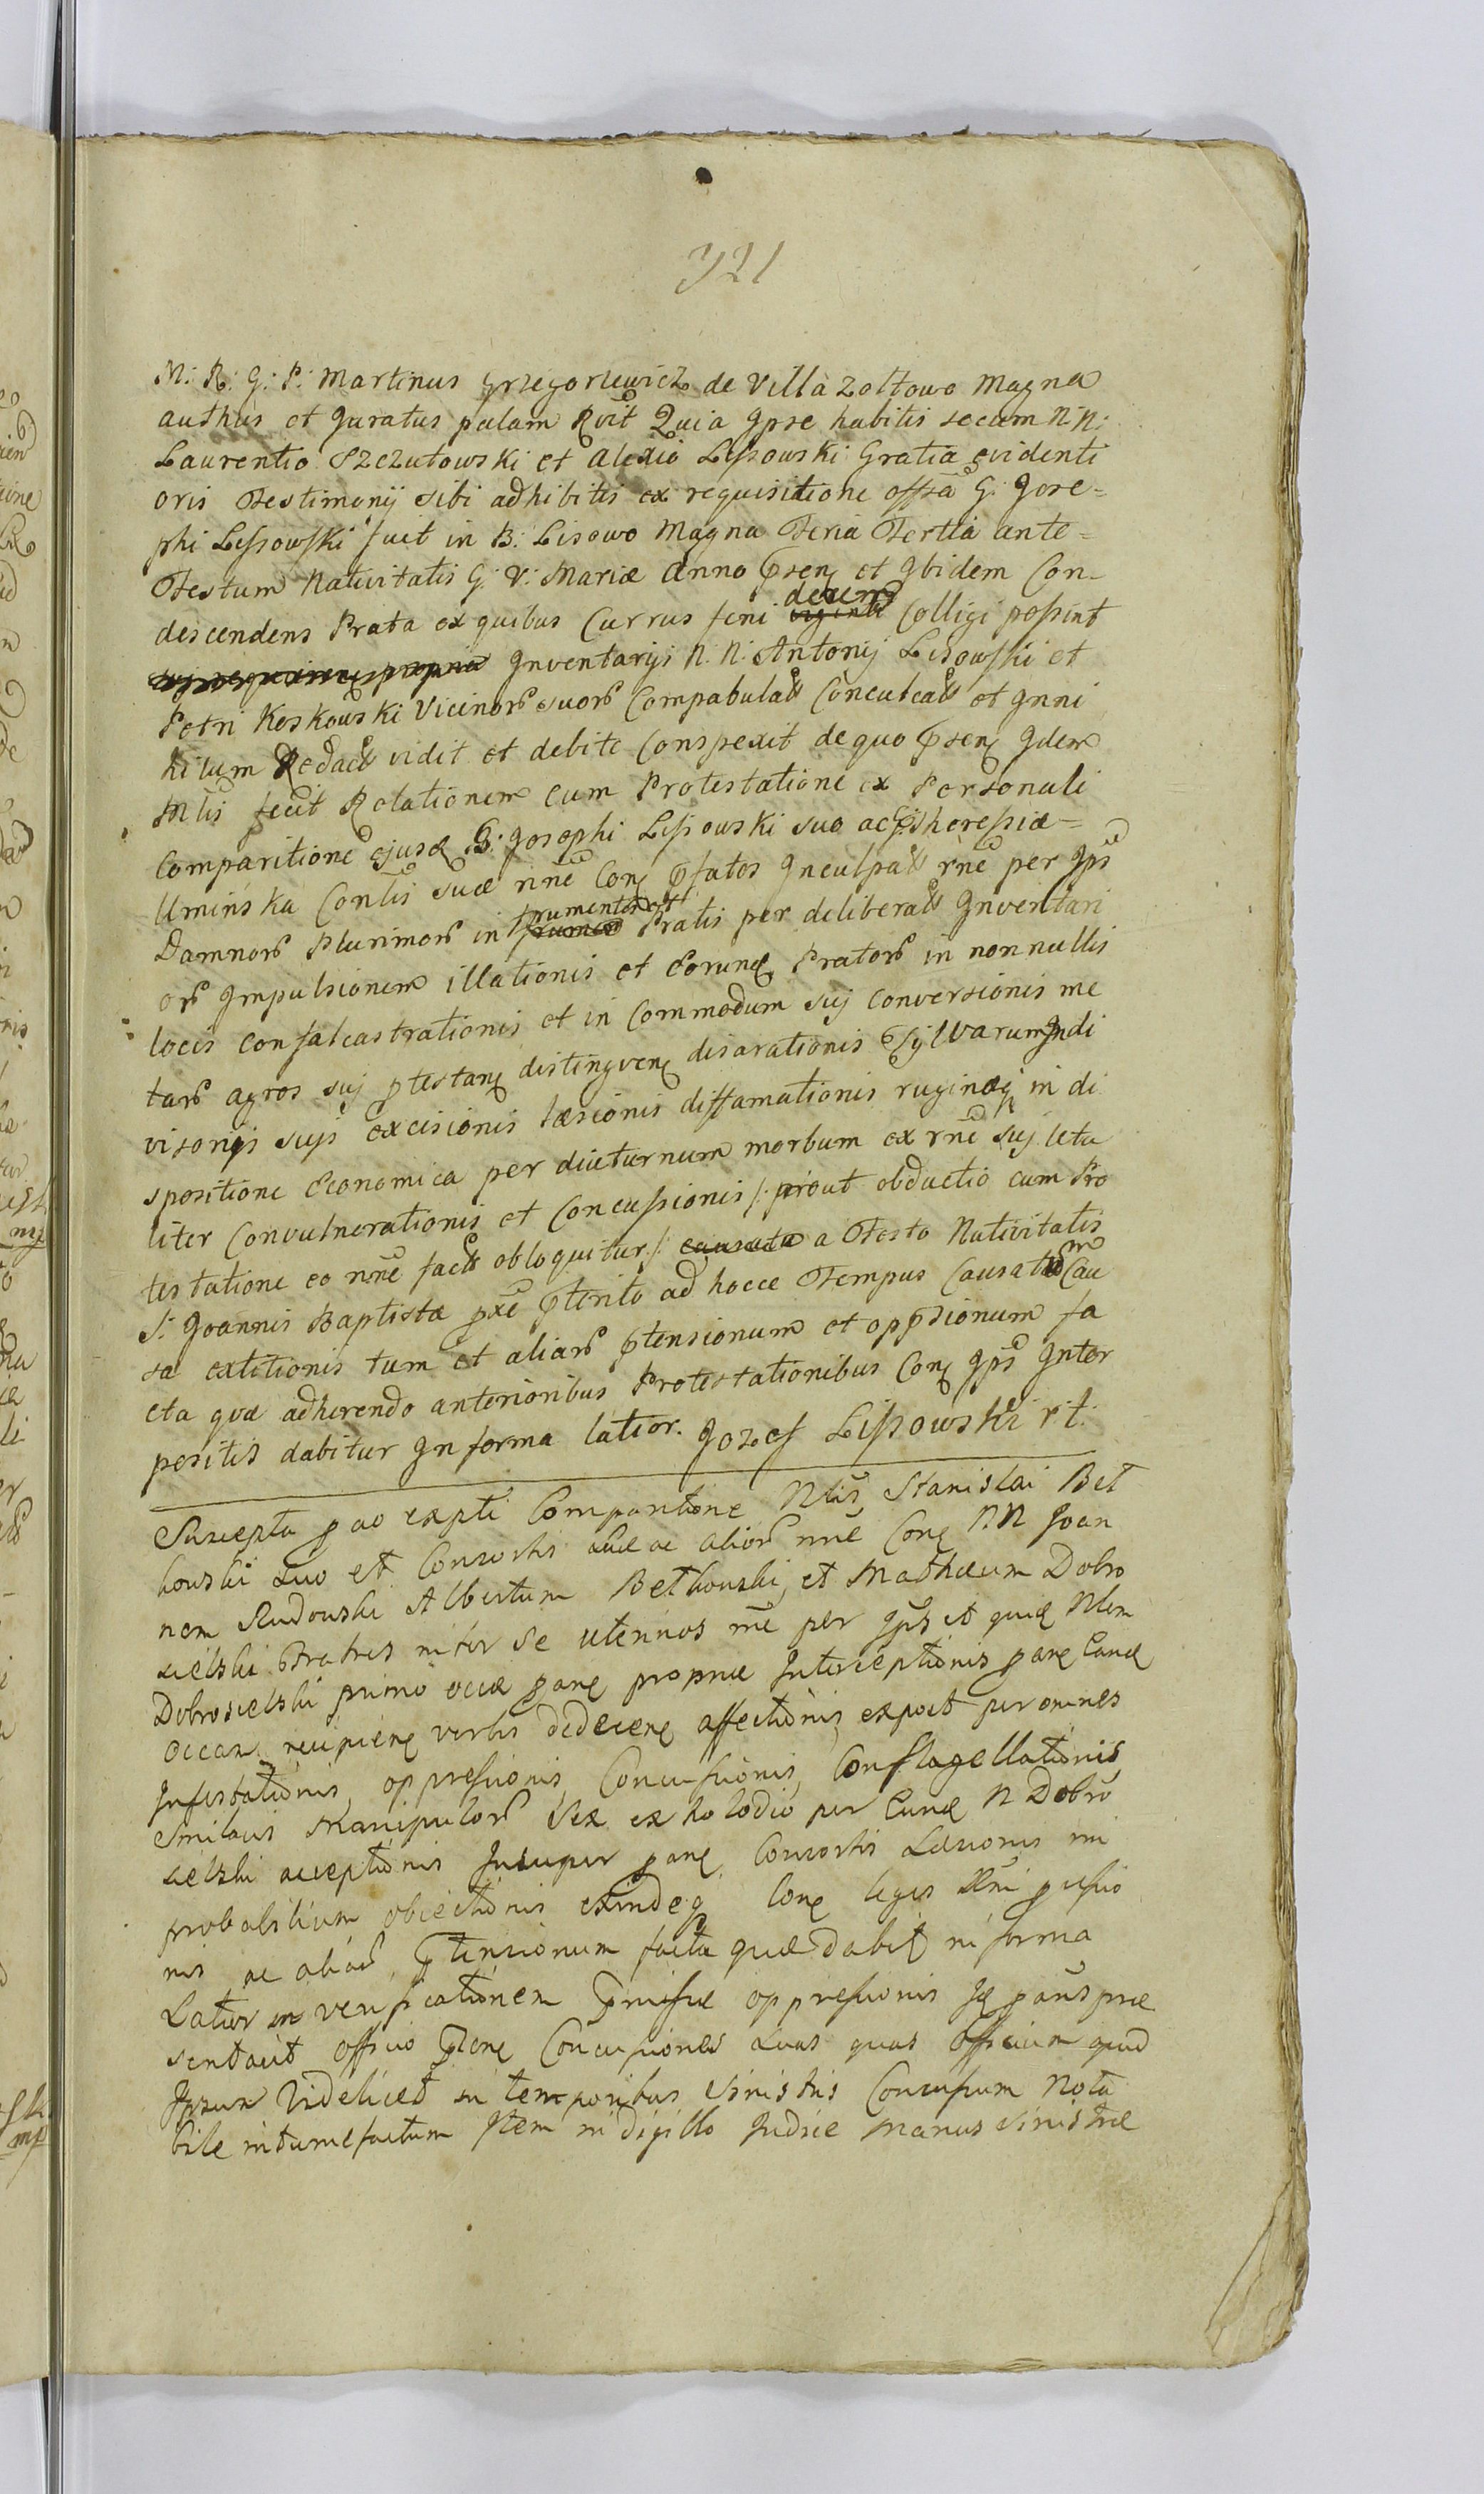 321
M: R: G: P: Martinus Grzegorzewicz de Villa Zołtowo Magna
authus et Juratus palam Rvit Quia Ipse habitis secum N:N:
Laurentio Szczutowski et Alexio Lissowski Gratia evidenti
oris Testimonij sibi adhibitis ex requisitione G: Jose=
phi Lissowski fuit in B: Lisowo Magna Feria Tertia ante=
Festum Nativitatis G: V: Mariæ Anno psen et Ibidem Con-
descendens Prata ex quibus Currus feni decem viginti Colligi possint
Inventarijs N. N: Antonij Lisowski et
Petri Koskowski Vicinor suor Compabulat Conculcat et Inni
hilum Redact vidit et debite Conspexit de quo psen Idem
Mlis fecit Relationem cum Protestatione ex Personali
Comparitione ejusd G: Josephi Lissowski suo ac Theressiæ=
Uminska Contis suæ nne Con pfatos Inculpat rne per Ips
Damnor Plurimor in frumentis et Pratis per deliberat Inventari
or Impulsionem illationis et Eorund Prator in nonnullis
locis confalcastrationis et in Commodum sui conversionis me
tar agros suj ptestan distingven disarationis Sylvarum Indi
visorijs sujs excisionis læsionis diffamationis ruginæq in di
spositione Economica per diuturnum morbum ex rne suj leta
liter Convulnerationis et Concussionis /: prout obductio cum Pro
testatione eo nne fact obloquitur :/ causata a Festo Nativitatis
S: Joannis Baptistæ pxe pterito ad hocce Tempus Causat Cau
sa extitionis tum et aliar ptensionum et oppsionum fa
cta quæ adherendo anterioribus Protestationibus Con Ips Inter
positis dabitur In forma latior. Jozef Lissowski r t:
Suscepta p ac expti Comparitione Nlis Stanislai Bet
kowski suo et Consortis suæ ac alior nne Con N.N Joan
nem Rudowski Albertum Betkowski, et Mathæum Dobro
sielski Fratres inter se uterinos rne per Ips et quid Nlem
Dobrosielski primo occæ pane propriæ Interceptionis pane Eand
Occan recipien verbis dedecen affectionis expost per omnes
Infestationis oppressionis Concussionis Conflagellationis
Smilaris Manipulor sex ex per Eund N Dobro
sielski acceptionis Insuper pane Consortis Læsionis im
probabilium obiectionis exindeq Con leges Rni p
nis ac aliar ptensionum facta quæ dabit in forma
Latior in verificationem pmissæ oppressionis Id pans præ
sentavit officio psen Concussiones suas quas officium apud
Ipsum Videlicet in temporibus sinistris Concussum Nota
bile intumefactum Item in digillo Indice manus sinistræ